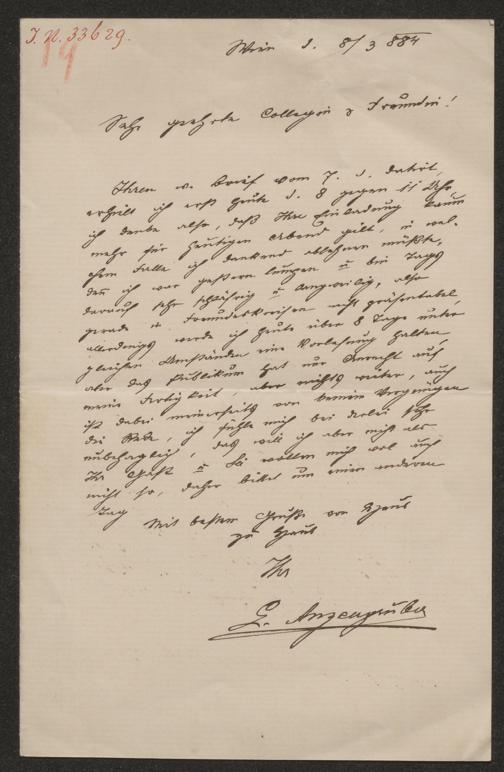 J. N. 33629.
19
Wien d. 8/3 884
Sehr geehrte Collegin & Freundin!
Ihren w. Brief vom 7. d. datirt,
erhielt ich erst heute d. 8 gegen 11 Uhr
ich denke also, daß Ihre Einladung kaum
mehr für heutigen Abend gilt, in wel-
chem Falle ich dankend ablehnen müßte,
denn ich war gestern lungen u bei Tags
darauf sehr schläfrig u langweilig, also
gerade in Freundeskreisen nicht präsentabel,
allerdings werde ich heute über 8 Tage unter
gleichen Umständen eine Vorlesung halten,
aber das Publikum hat nur Anrecht auf
meine Fertigkeit, aber nichts weiter, auch
ist dabei meinerseits von keinem Vergnügen
die Rede, ich fühle mich bei derlei sehr
unbehaglich, das will ich aber nicht als
Ihr Gast u Sie wollen mich wol auch
nicht so, daher bittet um einen anderen
Tag
Mit bestem Gruße von Haus
zu Haus
Ihr
L. Anzengruber